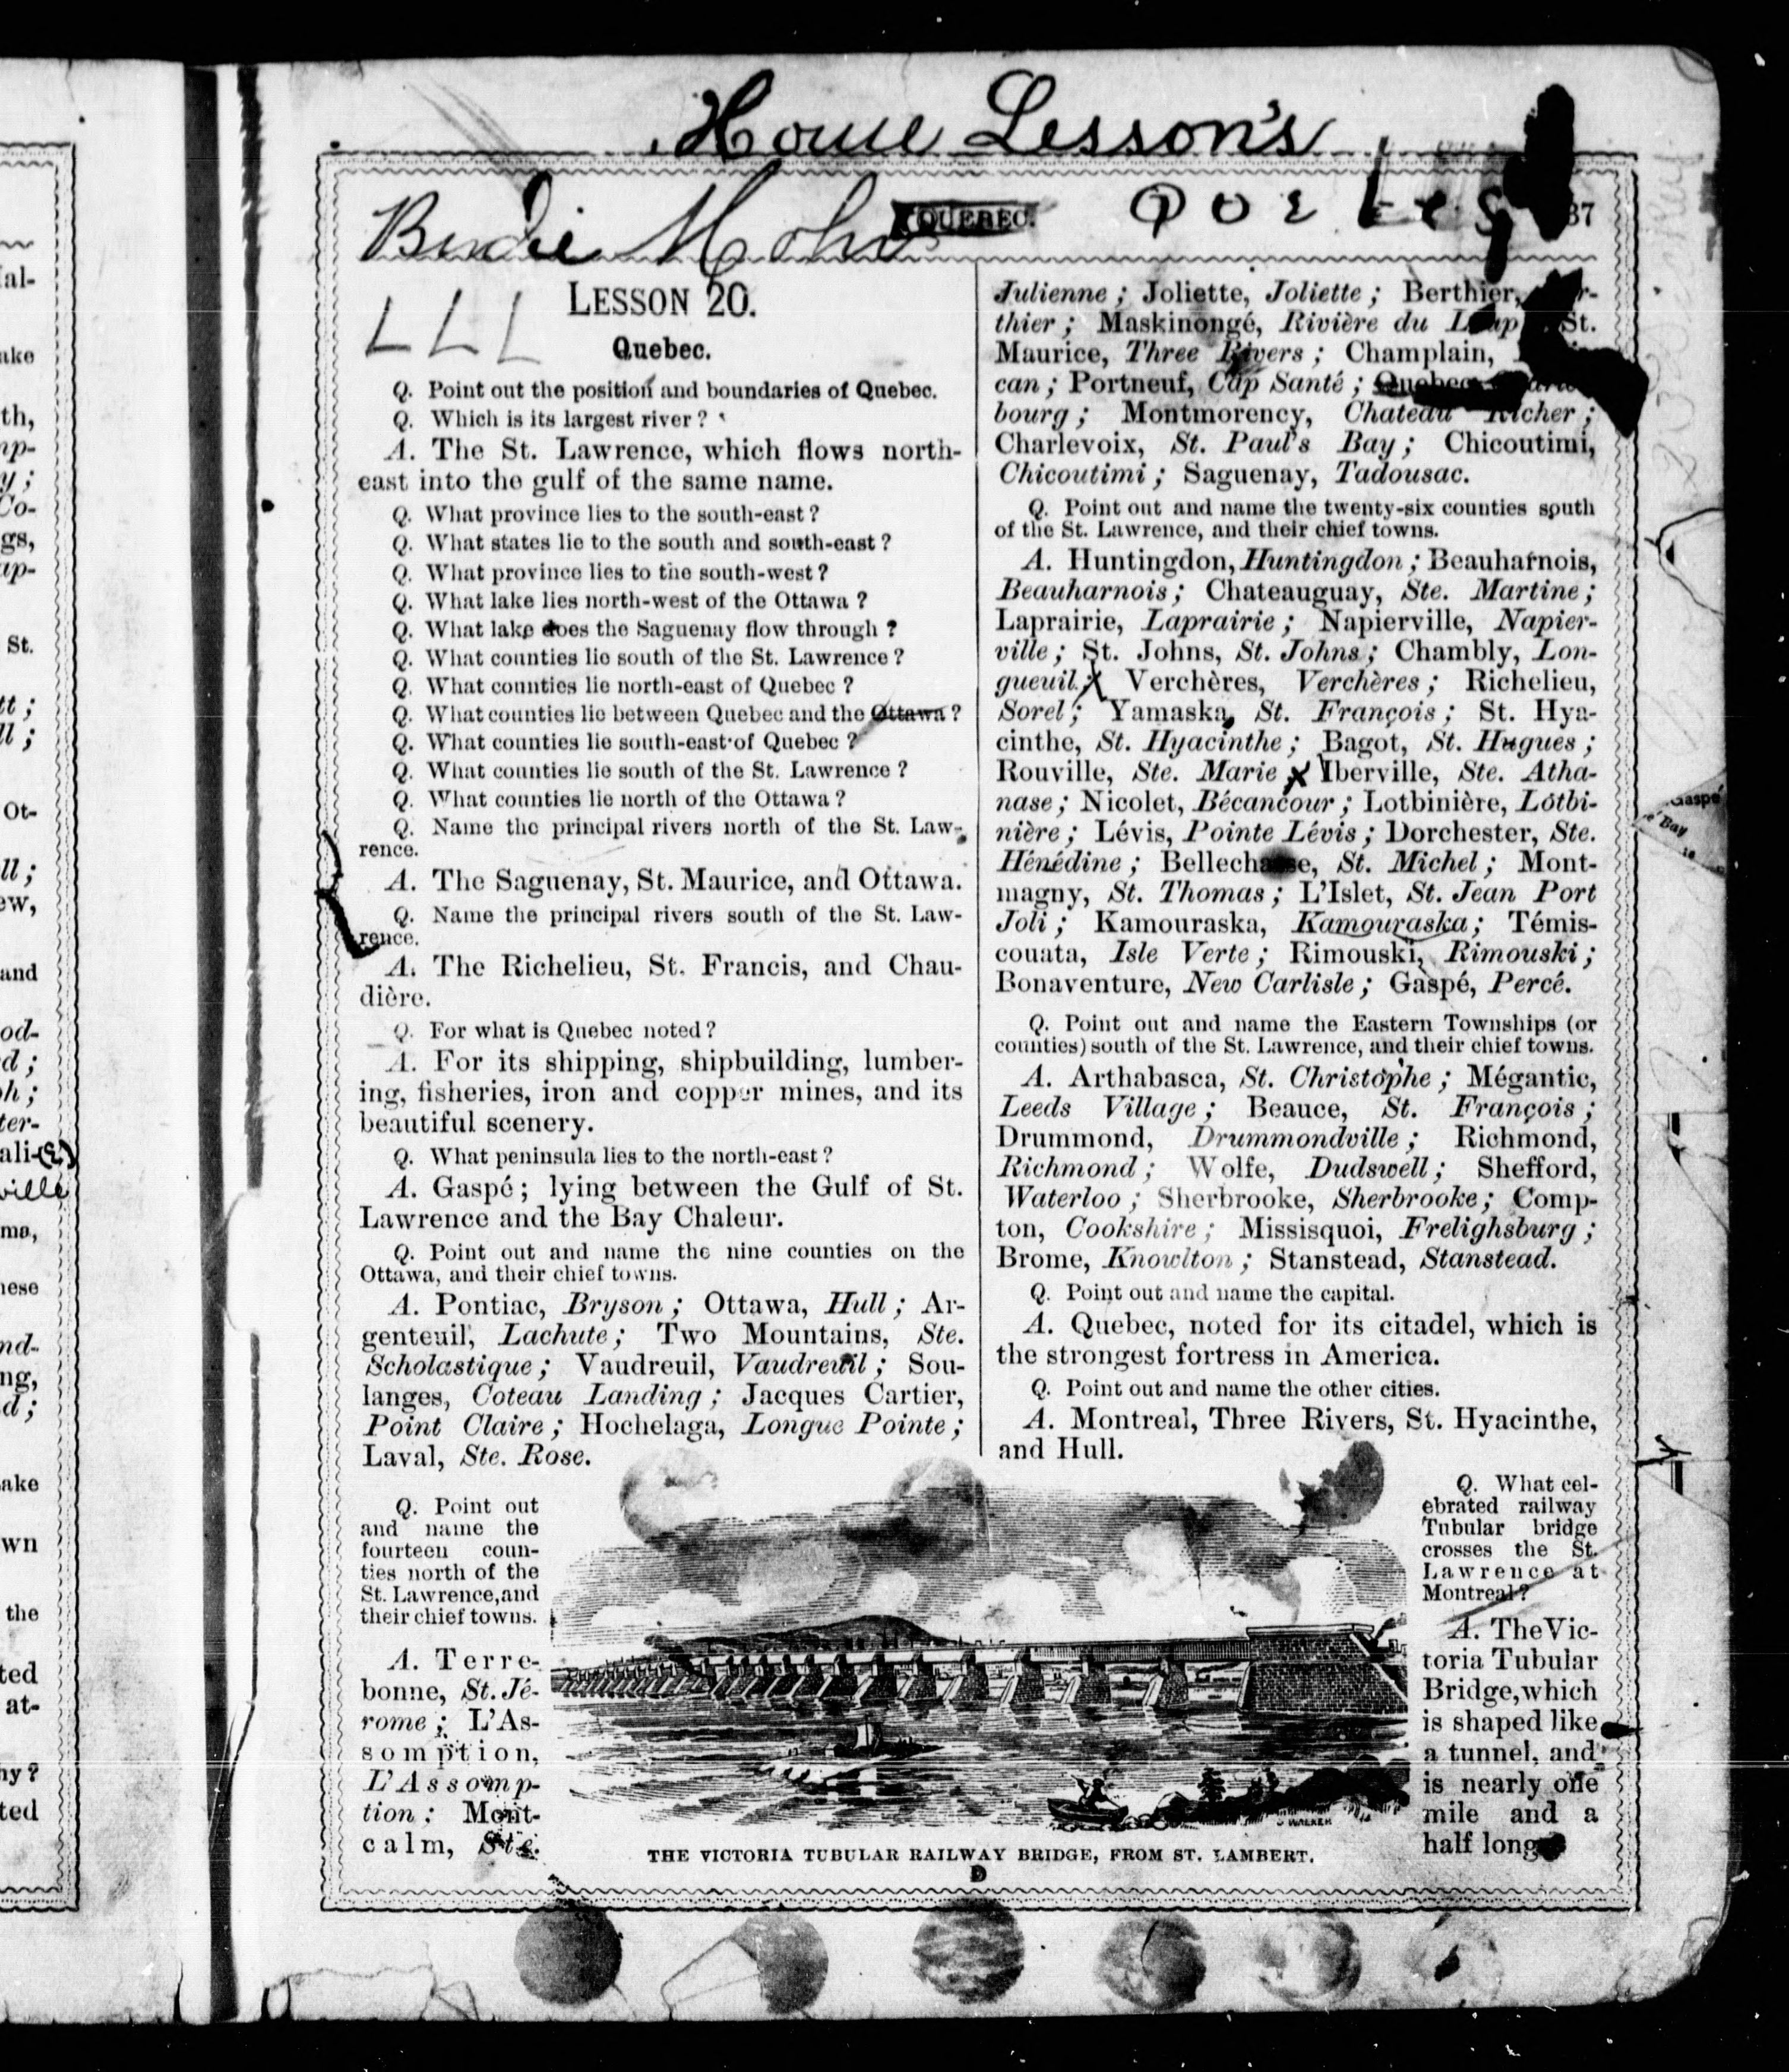 Home Lesson's
Birdie
QUEBEC.
37
LLL
LESSON 20.
Quebec.
Q. Point out the position and boundaries of Quebec.
Q. Which is its largest river?
A. The St. Lawrence, which flows north-
east into the gulf of the same name.
Q. What province lies to the south-east?
Q. What states lie to the south and south-east?
Q. What province lies to the south-west?
Q. What lake lies north-west of the Ottawa?
Q. What lake does the Saguenay flow through?
Q. What counties lie south of the St. Lawrence?
Q. What counties lie north-east of Quebec?
Q. What counties lie between Quebec and the Ottawa?
Q. What counties lie south-east of Quebec?
Q. What counties lie south of the St. Lawrence?
Q. What counties lie north of the Ottawa?
Q. Name the principal rivers north of the St. Law-
rence.
A. The Saguenay, St. Maurice, and Ottawa.
Q. Name the principal rivers south of the St. Law-
rence.
A. The Richelieu, St. Francis, and Chau-
dière.
Q. For what is Quebec noted?
A. For its shipping, shipbuilding, lumber-
ing, fisheries, iron and copper mines, and its
beautiful scenery.
Q. What peninsula lies to the north-east?
A. Gaspé; lying between the Gulf of St.
Lawrence and the Bay Chaleur.
Q. Point out and name the nine counties on the
Ottawa, and their chief towns.
A. Pontiac, Bryson; Ottawa, Hull; Ar-
genteuil, Lachute; Two Mountains, Ste.
Scholastique; Vaudreuil, Vaudreuil; Sou-
langes, Coteau Landing; Jacques Cartier,
Point Claire; Hochelaga, Longue Pointe;
Laval, Ste. Rose.
Q. Point out
and name the
fourteen coun-
ties north of the
St. Lawrence, and
their chief towns.
A. Terre-
bonne, St. Jé-
rome; L'As-
somption,
L'Assomp-
tion: Mont-
calm, Ste.
Julienne; Joliette, Joliette; Berthier,
thier; Maskinongé, Rivière du Loup St.
Maurice, Three Rivers; Champlain,
can; Portneuf, Cap Santé; Quebec,
bourg; Montmorency, Chateau Richer;
Charlevoix, St. Paul's Bay; Chicoutimi,
Chicoutimi; Saguenay, Tadousac.
Q. Point out and name the twenty-six counties south
of the St. Lawrence, and their chief towns.
A. Huntingdon, Huntingdon; Beauharnois,
Beauharnois; Chateauguay, Ste. Martine;
Laprairie, Laprairie; Napierville, Napier-
ville; St. Johns, St. Johns; Chambly, Lon-
gueuil; Verchères, Verchères; Richelieu,
Sorel; Yamaska, St. François; St. Hya-
cinthe, St. Hyacinthe; Bagot, St. Hugues;
Rouville, Ste. Marie; Iberville, Ste. Atha-
nase; Nicolet, Bécancour; Lotbinière, Lotbi-
nière; Lévis, Pointe Lévis; Dorchester, Ste.
Hénédine; Bellechasse, St. Michel; Mont-
magny, St. Thomas; L'Islet, St. Jean Port
Joli; Kamouraska, Kamouraska; Témis-
couata, Isle Verte; Rimouski, Rimouski;
Bonaventure, New Carlisle; Gaspé, Percé.
Q. Point out and name the Eastern Townships (or
counties) south of the St. Lawrence, and their chief towns.
A. Arthabasca, St. Christophe; Mégantic,
Leeds Village; Beauce, St. François;
Drummond, Drummondville; Richmond,
Richmond; Wolfe, Dudswell; Shefford,
Waterloo; Sherbrooke, Sherbrooke; Comp-
ton, Cookshire; Missisquoi, Frelighsburg;
Brome, Knowlton; Stanstead, Stanstead.
Q. Point out and name the capital.
A. Quebec, noted for its citadel, which is
the strongest fortress in America.
Q. Point out and name the other cities.
A. Montreal, Three Rivers, St. Hyacinthe,
and Hull.
Q. What cel-
ebrated railway
Tubular bridge
crosses the St.
Lawrence at
Montreal?
A. The Vic-
toria Tubular
Bridge, which
is shaped like
a tunnel, and
is nearly one
mile and a
half long
THE VICTORIA TUBULAR RAILWAY BRIDGE, FROM ST. LAMBERT.
D
Gaspé
Bay